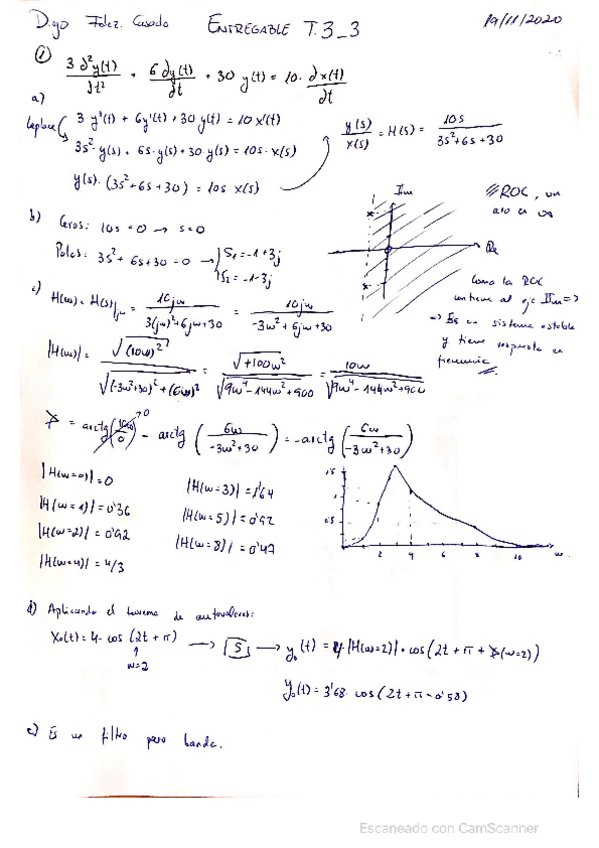 Dgo Fdez. Casado ENTREGABLE T.3_3 19/11/2020
① 3 d²y(t)/dt² + 6 dy(t)/dt + 30 y(t) = 10 · dx(t)/dt
a)
Laplace 3 y''(t) + 6y'(t) + 30 y(t) = 10 x'(t)
3s²·y(s) + 6s·y(s) + 30·y(s) = 10s·x(s)
y(s)·(3s²+6s+30) = 10s·x(s)
y(s)/x(s) = H(s) = 10s/(3s²+6s+30)
b) Ceros: 10s = 0 → s=0
Polos: 3s² + 6s+30 = 0 → s₁ = -1+3j
s₂ = -1-3j
Im
Re
ROC, un
en ∞
Como la ROC
contiene al eje Im ⇒
⇒ Es un sistema estable
y tiene respuesta en
frecuencia
c) H(ω) = H(s)|jω = 10jω/(3(jω)²+6jω+30) = 10jω/(-3ω²+6jω+30)
|H(ω)| = √(10ω)²/√((-3ω²+30)²+(6ω)²) = √+100ω²/√(9ω⁴-144ω²+900) = 10ω/√(9ω⁴-144ω²+900)
∡ = arctg(10ω/0)→0 - arctg(6ω/(-3ω²+30)) = -arctg(6ω/(-3ω²+30))
|H(ω=0)| = 0
|H(ω=1)| = 0'36
|H(ω=2)| = 0'92
|H(ω=4)| = 4/3
|H(ω=3)| = 1'64
|H(ω=5)| = 0'92
|H(ω=8)| = 0'47
1'5
1
0'5
2 4 6 8 10 ω
d) Aplicando el teorema de autovalores:
x₀(t) = 4·cos(2t+π) → S → y₀(t) = 4·|H(ω=2)|·cos(2t+π+∡(ω=2))
ω=2
y₀(t) = 3'68·cos(2t+π-0'58)
e) Es un filtro paso banda.
Escaneado con CamScanner